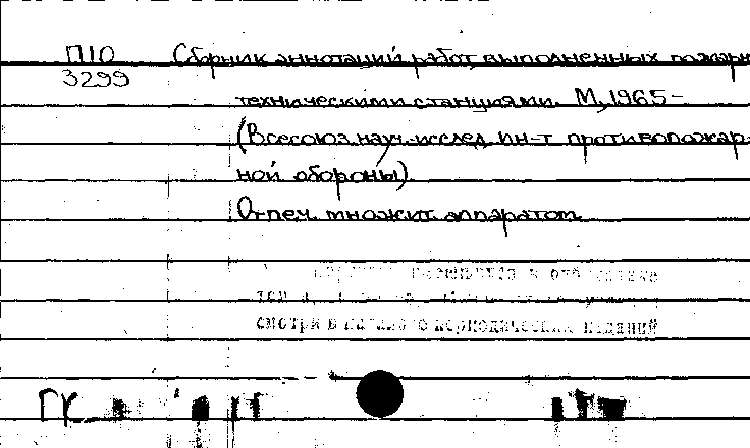 П10 Сборник аннотаций работ, выполненных пожарно
3299
техническими станциями. М, 1965-
(Всесоюз. науч.-исслед. ин-т противопожар-
ной обороны).
Отпеч. множит. аппаратом
смотри в каталоге периодических изданий
ГК